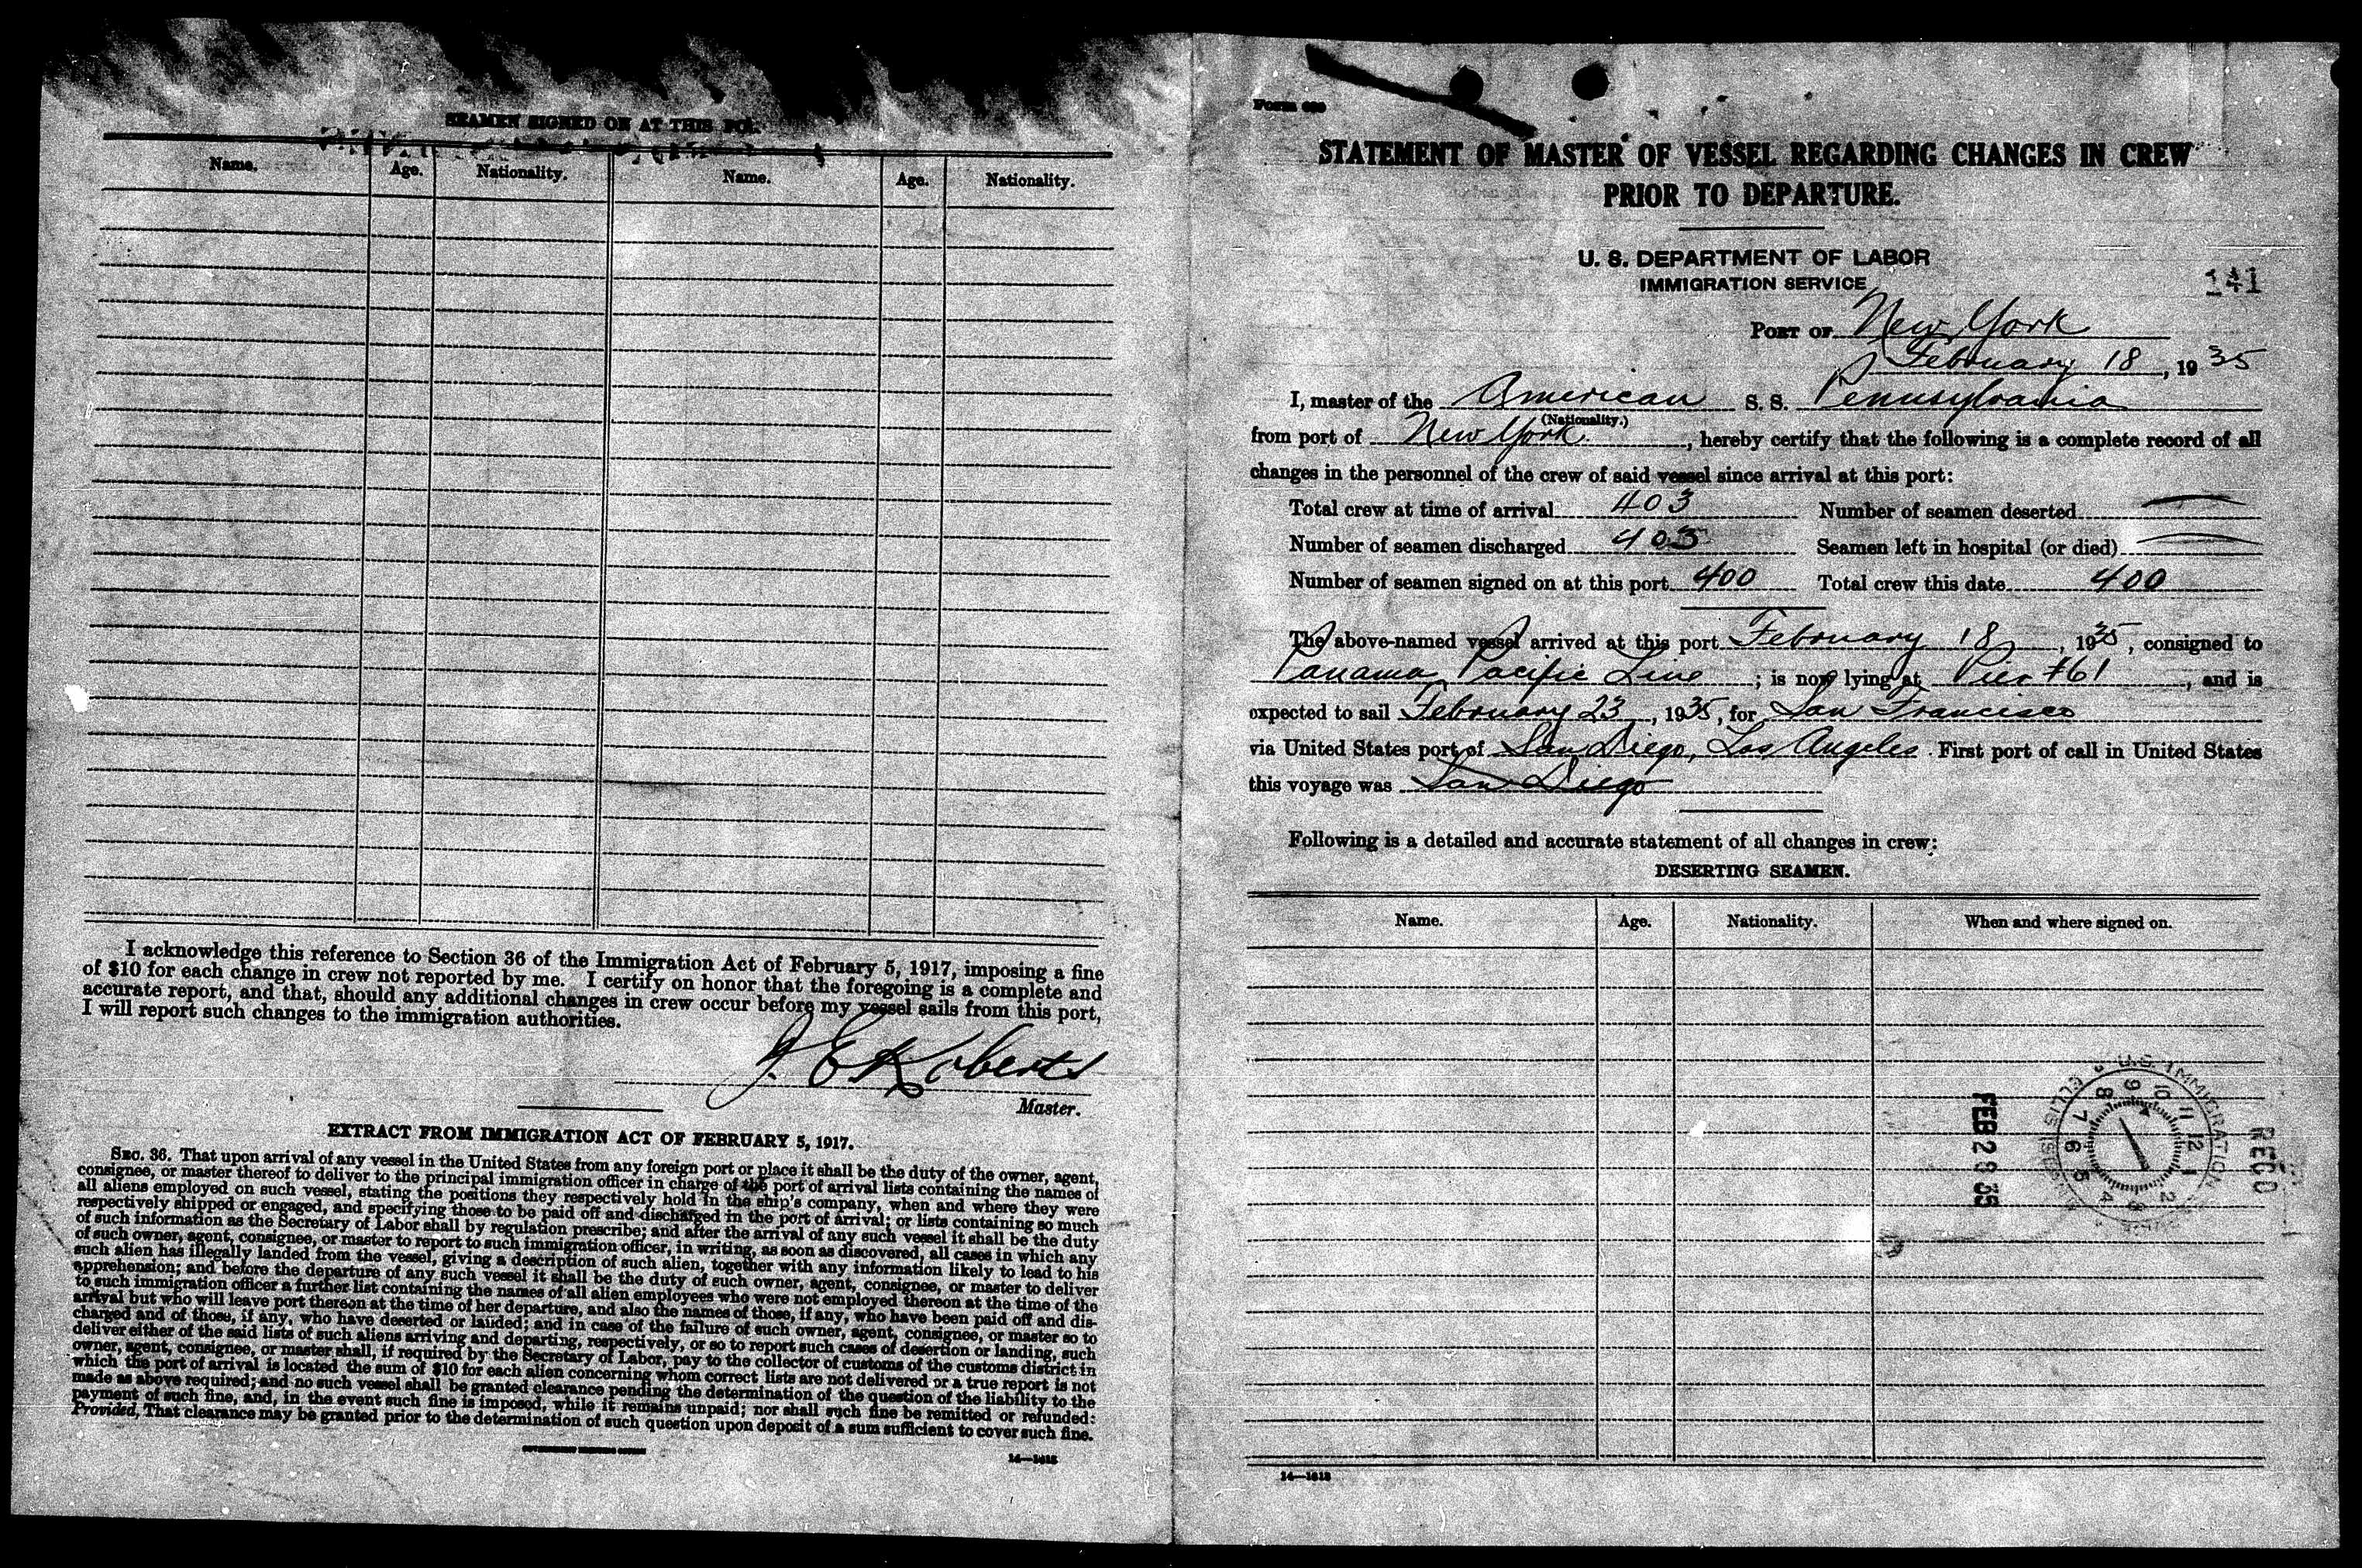 SEAMEN SIGNED ON AT THIS
Name. Age. Nationality. Name. Age. Nationality.
I acknowledge this reference to Section 36 of the Immigration Act of February 5, 1917, imposing a fine
of $10 for each change in crew not reported by me. I certify on honor that the foregoing is a complete and
accurate report, and that, should any additional changes in crew occur before my vessel sails from this port,
I will report such changes to the immigration authorities.
J. E. Roberts
Master.
EXTRACT FROM IMMIGRATION ACT OF FEBRUARY 5, 1917.
SEC. 36. That upon arrival of any vessel in the United States from any foreign port or place it shall be the duty of the owner, agent,
consignee, or master thereof to deliver to the principal immigration officer in charge of the port of arrival lists containing the names of
all aliens employed on such vessel, stating the positions they respectively hold in the ship's company, when and where they were
respectively shipped or engaged, and specifying those to be paid off and discharged in the port of arrival; or lists containing so much
of such information as the Secretary of Labor shall by regulation prescribe; and after the arrival of any such vessel it shall be the duty
of such owner, agent, consignee, or master to report to such immigration officer, in writing, as soon as discovered, all cases in which any
such alien has illegally landed from the vessel, giving a description of such alien, together with any information likely to lead to his
apprehension; and before the departure of any such vessel it shall be the duty of such owner, agent, consignee, or master to deliver
to such immigration officer a further list containing the names of all alien employees who were not employed thereon at the time of the
arrival but who will leave port thereon at the time of her departure, and also the names of those, if any, who have been paid off and dis-
charged and of those, if any, who have deserted or landed; and in case of the failure of such owner, agent, consignee, or master so to
deliver either of the said lists of such aliens arriving and departing, respectively, or so to report such cases of desertion or landing, such
owner, agent, consignee, or master shall, if required by the Secretary of Labor, pay to the collector of customs of the customs district in
which the port of arrival is located the sum of $10 for each alien concerning whom correct lists are not delivered or a true report is not
made as above required; and no such vessel shall be granted clearance pending the determination of the question of the liability to the
payment of such fine, and, in the event such fine is imposed, while it remains unpaid; nor shall such fine be remitted or refunded:
Provided, That clearance may be granted prior to the determination of such question upon deposit of a sum sufficient to cover such fine.
14—1618
Form 689
STATEMENT OF MASTER OF VESSEL REGARDING CHANGES IN CREW
PRIOR TO DEPARTURE.
U. S. DEPARTMENT OF LABOR
IMMIGRATION SERVICE
141
PORT OF New York
February 18, 1935
I, master of the American S. S. Pennsylvania
(Nationality.)
from port of New York, hereby certify that the following is a complete record of all
changes in the personnel of the crew of said vessel since arrival at this port:
Total crew at time of arrival 403 Number of seamen deserted —
Number of seamen discharged 403 Seamen left in hospital (or died) —
Number of seamen signed on at this port 400 Total crew this date 400
The above-named vessel arrived at this port February 18, 1935, consigned to
Panama Pacific Line; is now lying at Pier #61, and is
expected to sail February 23, 1935, for San Francisco
via United States port of San Diego, Los Angeles. First port of call in United States
this voyage was San Diego
Following is a detailed and accurate statement of all changes in crew:
DESERTING SEAMEN.
Name. Age. Nationality. When and where signed on.
REC'D
U.S. IMMIGRATION
ELLIS ISLAND
12 1 2 3 4 5 6 7 8 9 10 11
FEB 28 35
14—1618